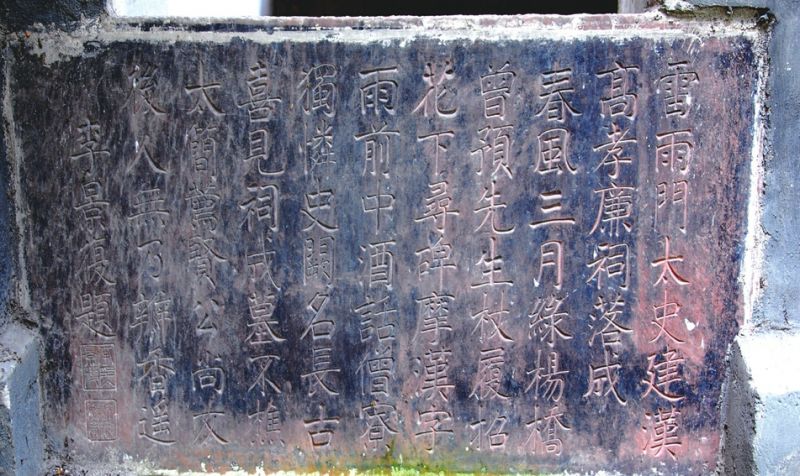 雷雨門太史建漢
高孝廉祠落成
春風三月綠楊橋
曾預先生杖履招
花下尋碑摩漢字
雨前中酒話僧寮
獨憐史闕名長古
喜見祠成墓不樵
太簡薦賢公尚友
後人無乃瓣香遥
李景復題